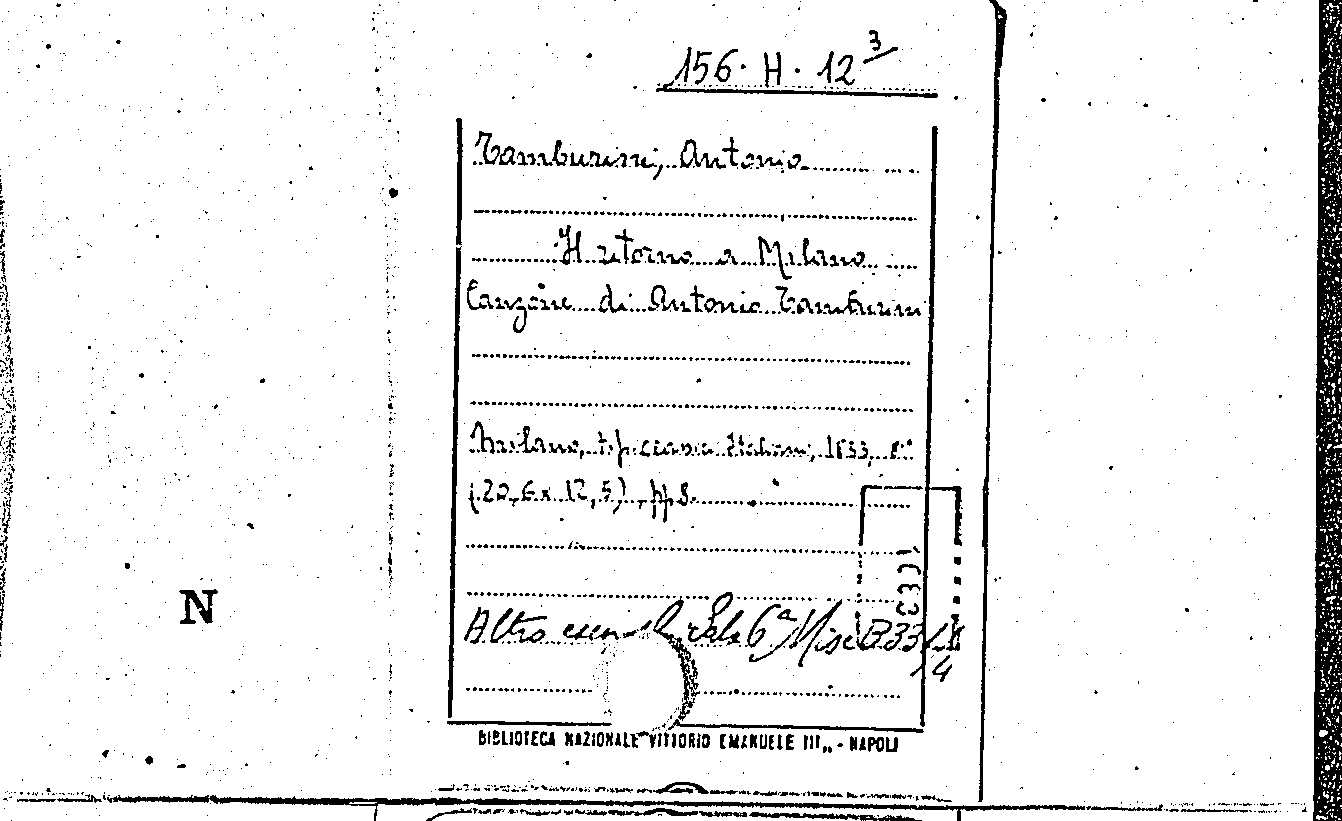 156. H. 12 3
Tamburini, Antonio
Il ritorno a Milano
Canzone di Antonio Tamburini
Milano, tip.
(20,6 x 12,5) pp 8.
1833
Altro Sala 6ª Misc B 33
4
N
BIBLIOTECA NAZIONALE "VITTORIO EMANUELE III„ - NAPOLI